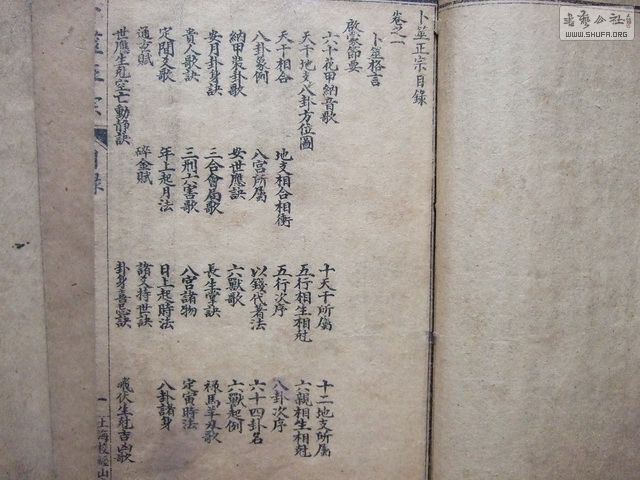 卜筮正宗目錄
卷之一
卜筮格言
啟蒙節要
六十花甲納音歌
天干地支八卦方位圖
天干相合 地支相合相衝 十天干所屬 十二地支所屬
八卦象例 八宮所屬 五行相生相尅 六親相生相尅
納甲裝卦歌 安世應訣 五行次序 八卦次序
安月卦身訣 三合會局歌 以錢代蓍法 六十四卦名
貴人歌訣 三刑六害歌 六獸歌 六獸起例
定間爻歌 年上起月法 長生掌訣 祿馬羊刃歌
通玄賦 碎金賦 八宮諸物 定寅時法
世應生尅空亡動靜訣 日上起時法 八卦諸身
諸爻持世訣
卦身喜忌訣 飛伏生尅吉凶歌
目錄
一
上海校經山
書藝公社
WWW.SHUFA.ORG